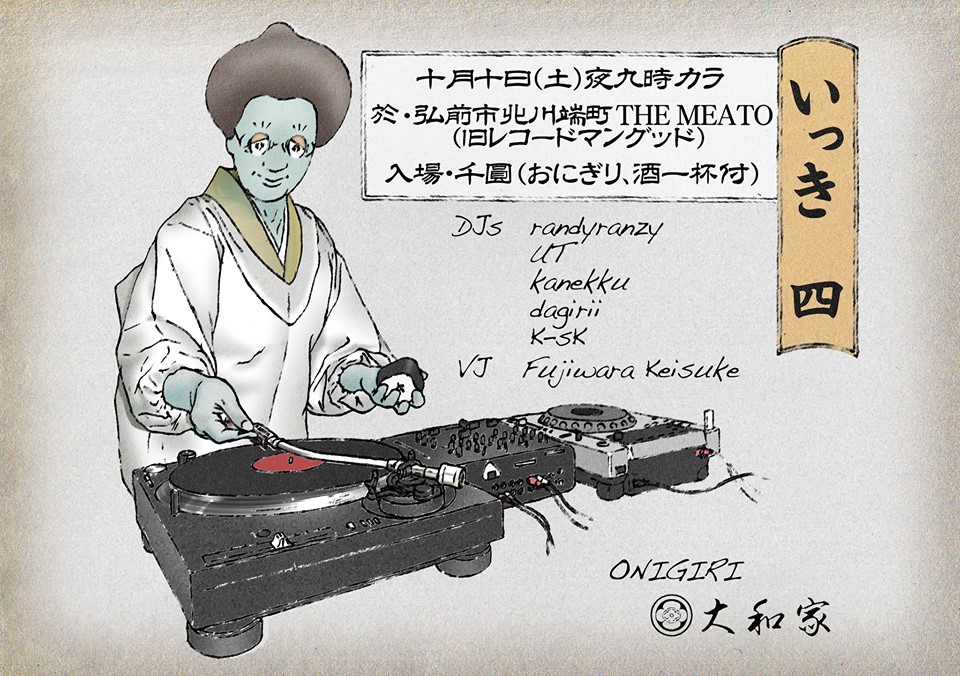 十月十日(土)夜九時カラ
於・弘前市北川端町 THE MEATO
(旧レコードマングッド)
入場・千圓(おにぎり、酒一杯付)
いっき 四
DJs randyranzy
UT
kanekku
dagirii
K-SK
VJ Fujiwara Keisuke
ONIGIRI
大和家